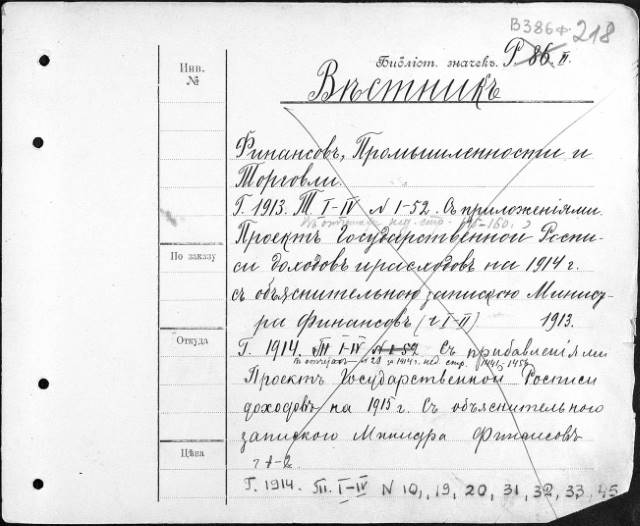 В386ф. 218
Инв. №
Библіот. значекъ. Р 86 II.
Вѣстникъ
Финансовъ, Промышленности и
Торговли.
Г. 1913. Т. I-IV N 1-52. Съ приложеніями.
нед. стр. 145-160.
Проектъ Государственной Роспи-
По заказу
си доходовъ и расходовъ на 1914 г.
съ объяснительною запискою Минист-
ра Финансовъ (ч I-II) 1913.
Откуда
Г. 1914. Т. I-IV N 1-52 Съ прибавленіями
нед. стр. 1441-1456
Проектъ Государственной Росписи
доходовъ на 1915 г. Съ объяснительного
запискою Министра Финансовъ
Цѣна
ч 1-2.
Г. 1914. Т. I-IV N 10, 19, 20, 31, 32, 33, 45